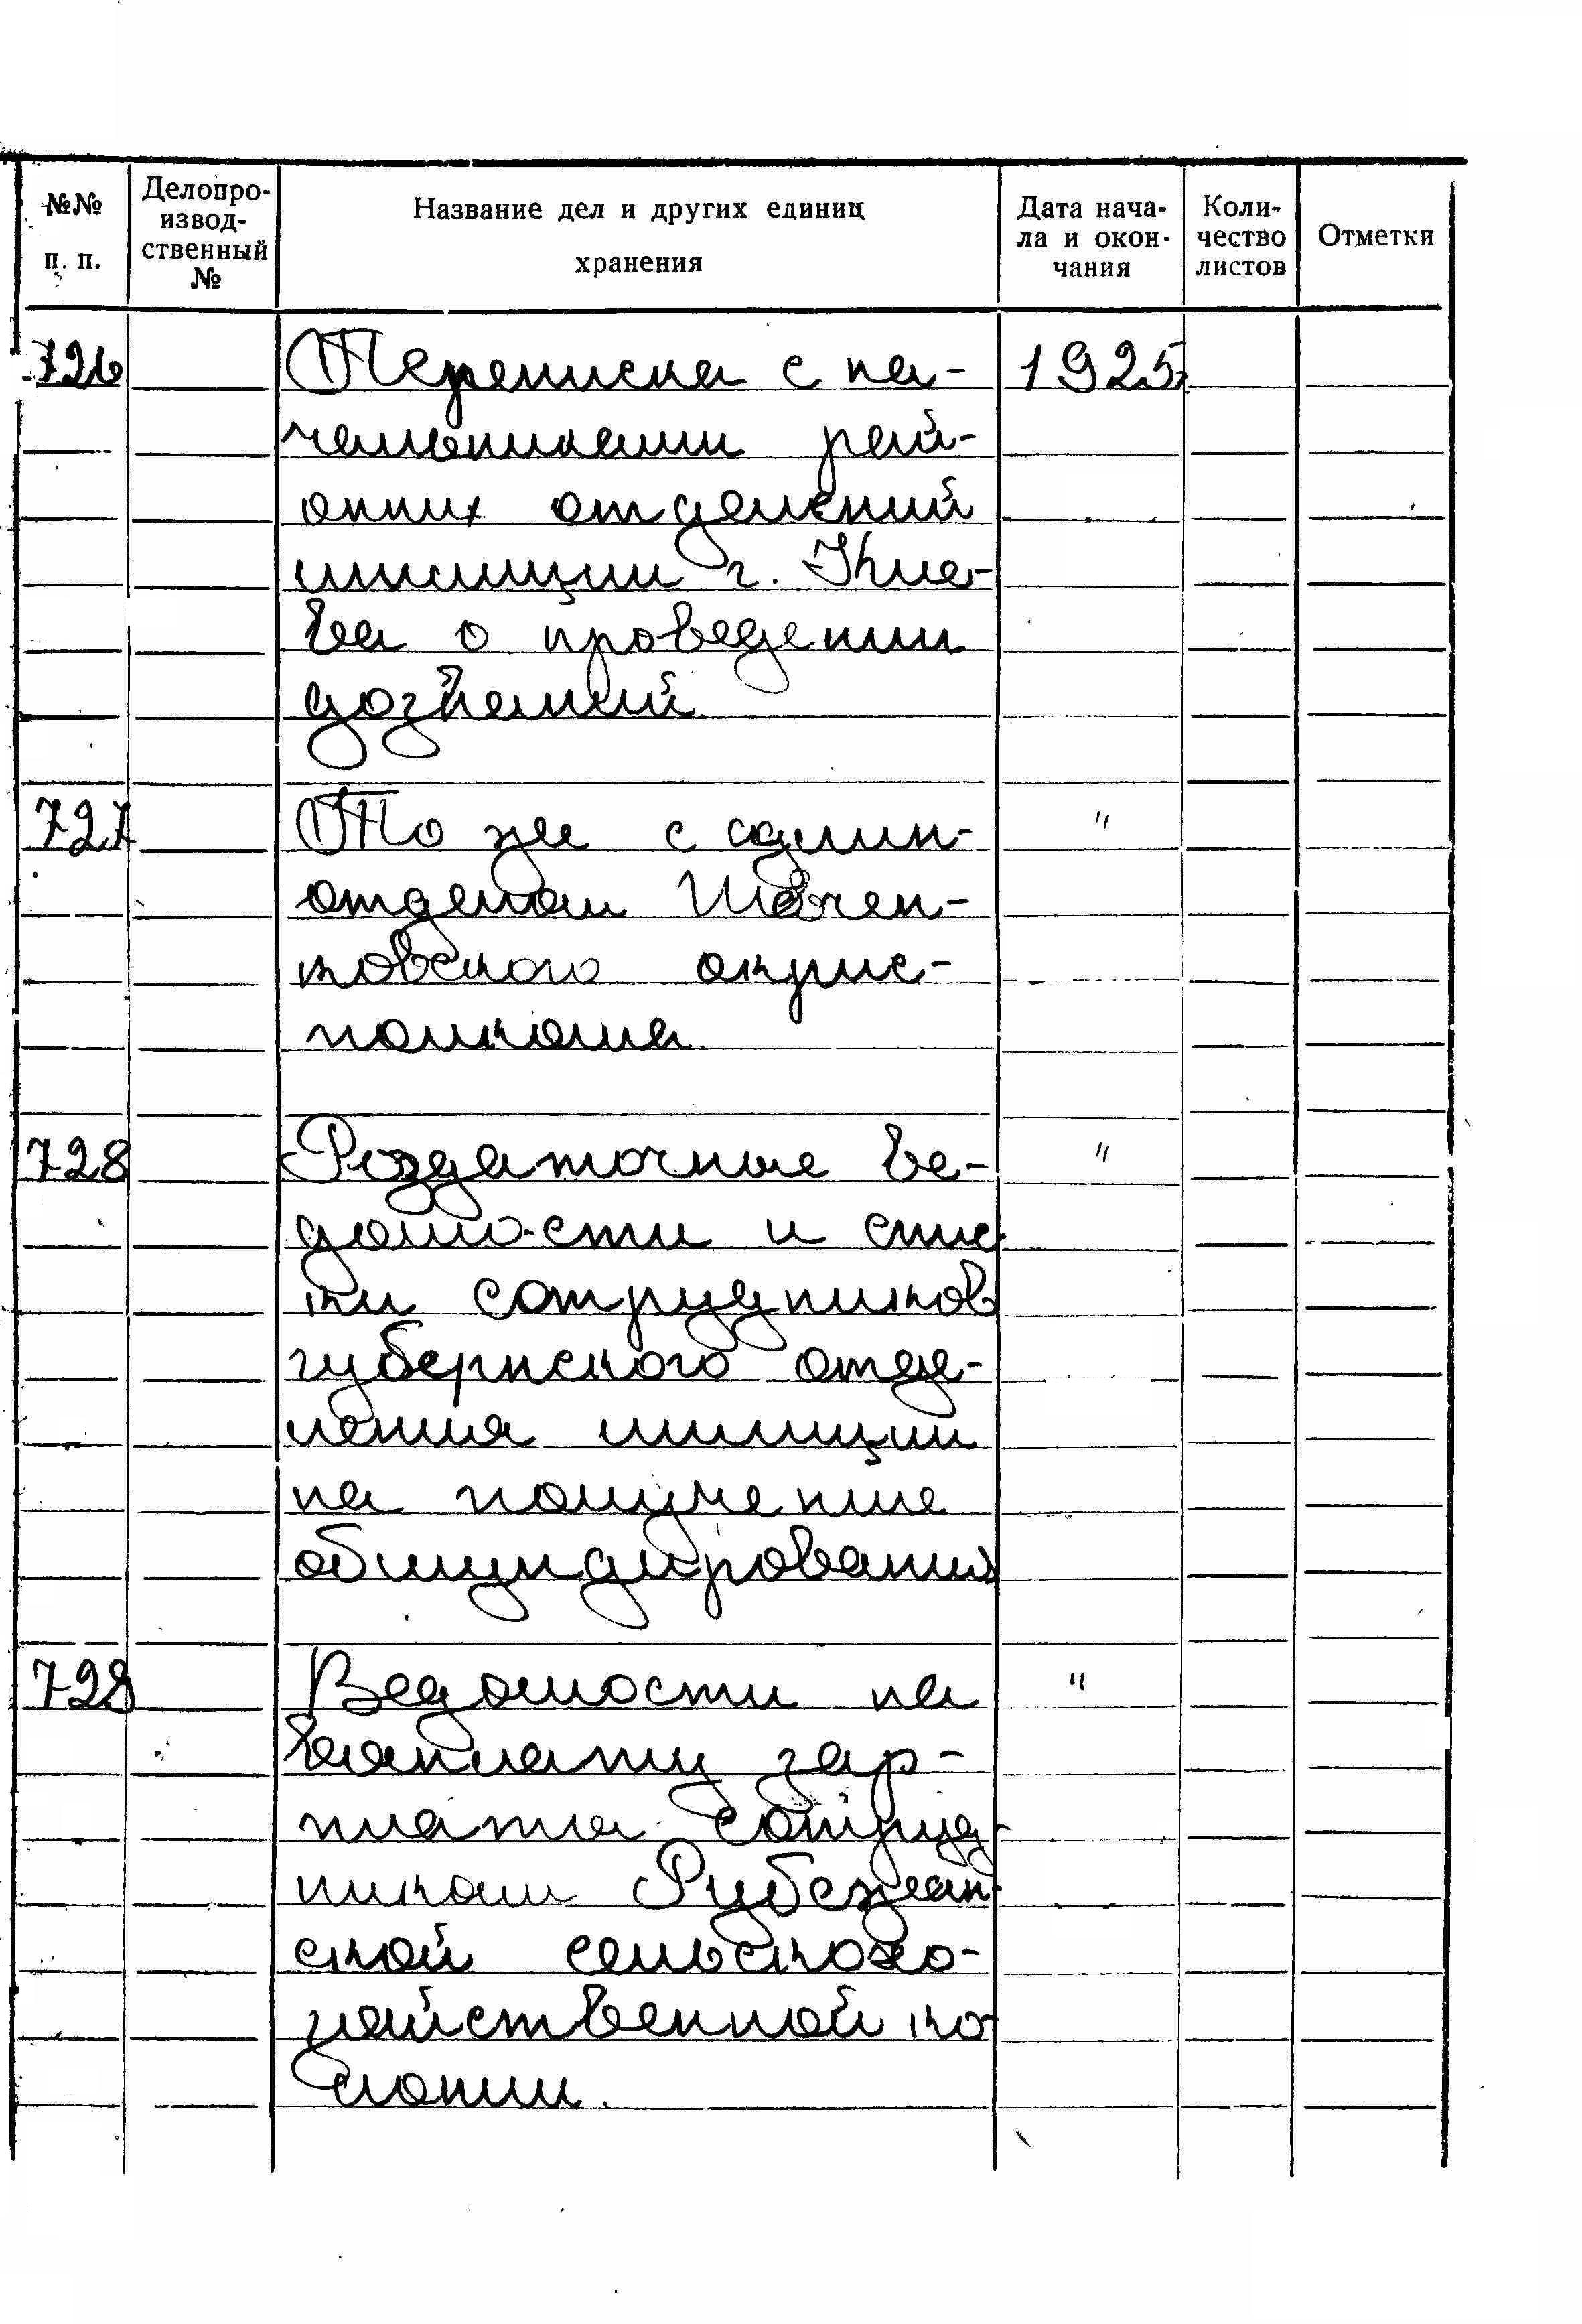 №№ п. п.
Делопро-
извод-
ственный
№
Название дел и других единиц
хранения
Дата нача-
ла и окон-
чания
Коли-
чество
листов
Отметки
726 Переписка с на- 1925г
чальниками рай-
онних отделений
милиции г. Кие-
ва о проведении
дознаний
727 То же с админ- "
отделом Шевчен-
ковского окрис-
полкома.
728 Раздаточные ве- "
домо-сти и спис
ки сотрудников
губернского отде-
ления милиции
на получение
обмундирования
729 Ведомости на "
выплату зар-
платы сотруд-
никам Рубежан-
ской сельскохо-
зяйственной ко-
лонии.